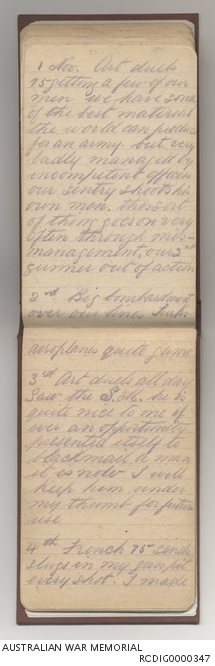 1 Nov. Art duels
75 getting a few of our
men we have some
of the best material
the world can produce
for an army but very
badly managed by
incompetent officers
our sentry shoots his
own men. this sort
of thing goes on very
often through mis-
management, our 2nd
gunner out of action
2nd Big bombardment
over our lines Turks
aeroplanes quite game
3rd Art duels all day
Saw the S.M. he is
quite nice to me if
ever an opportunity
presented itself to
blackmail a man
it is now I will
keep him under
my thumb for future
use
4th French 75 sinch
slugs in my gunpit
every shot. I made
AUSTRALIAN WAR MEMORIAL
RCDIG0000347